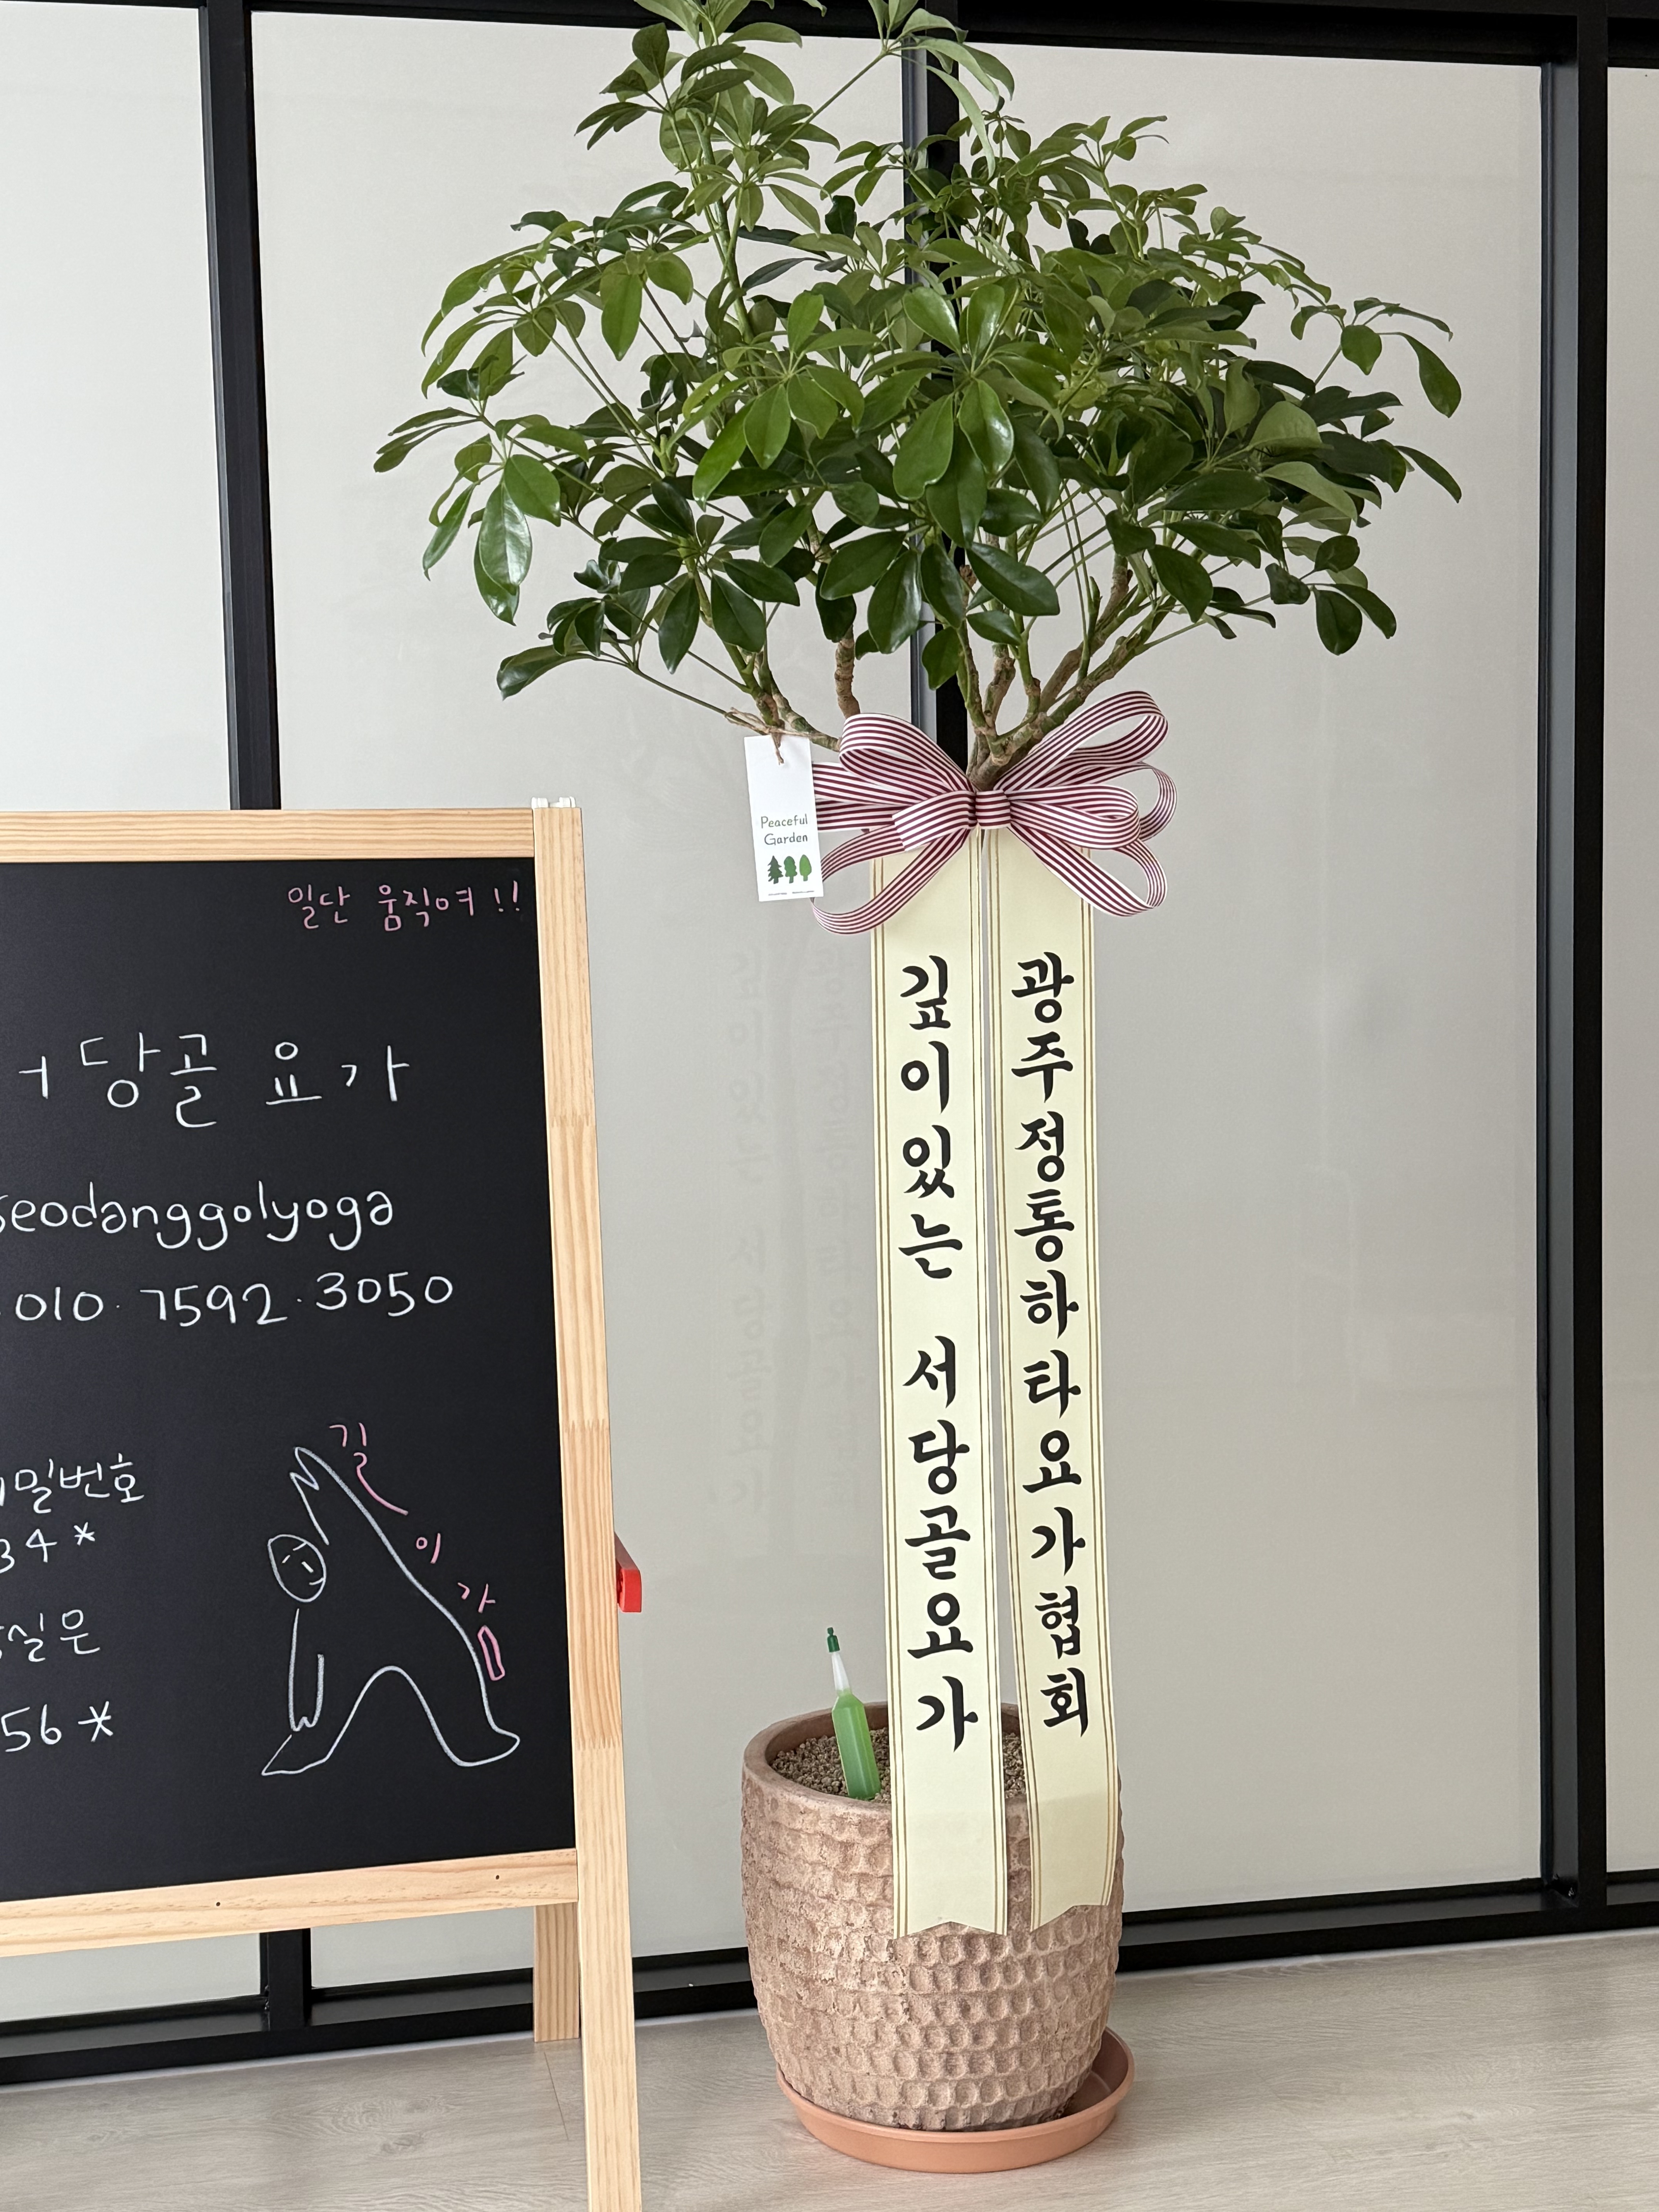 일단 움직여!!
당골 요가
seodanggolyoga
010.7592.3050
밀번호
34*
실은
56*
길
이
가
Peaceful
Garden
깊이있는 서당골요가
광주정통하타요가협회